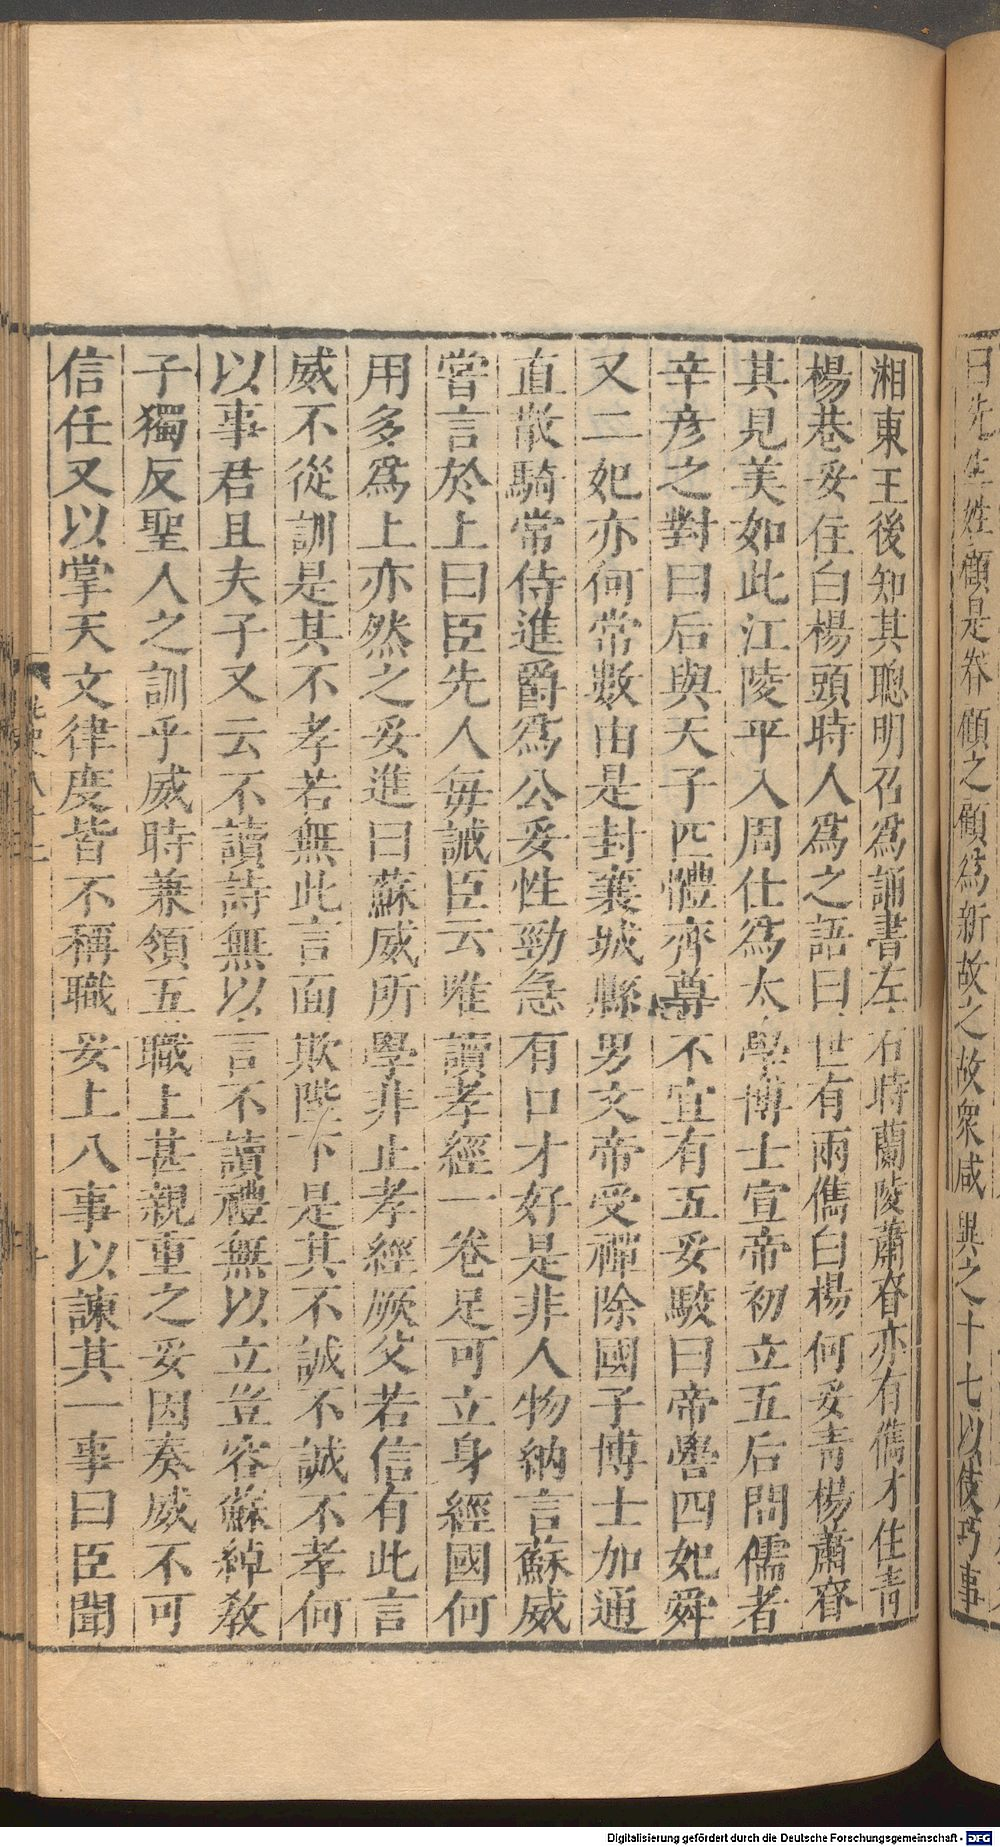 曰先生姓顧是眷顧之顧爲新故之故衆咸異之十七以伎巧事
湘東王後知其聰明召爲誦書左右時蘭陵蕭眘亦有儁才住青
楊巷妥住白楊頭時人爲之語曰世有兩儁白楊何妥青楊蕭眘
其見美如此江陵平入周仕爲太學博士宣帝初立五后問儒者
辛彦之對曰后與天子匹體齊尊不宜有五妥駮曰帝嚳四妃舜
又二妃亦何常數由是封襄城縣男文帝受禪除國子博士加通
直散騎常侍進爵爲公妥性勁急有口才好是非人物納言蘇威
嘗言於上曰臣先人每誡臣云唯讀孝經一卷足可立身經國何
用多爲上亦然之妥進曰蘇威所學非止孝經厥父若信有此言
威不從訓是其不孝若無此言面欺陛下是其不誠不誠不孝何
以事君且夫子又云不讀詩無以言不讀禮無以立豈容蘇綽教
子獨反聖人之訓乎威時兼領五職上甚親重之妥因奏威不可
信任又以掌天文律度皆不稱職妥上八事以諫其一事曰臣聞
Digitalisierung gefördert durch die Deutsche Forschungsgemeinschaft - DFG